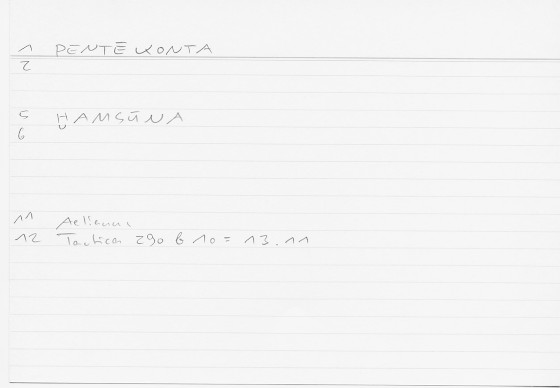 1 PENTĒKONTA
2
5 ḪAMSŪNA
6
11 Aelianus
12 Tactica 290 b 10 = 13.11